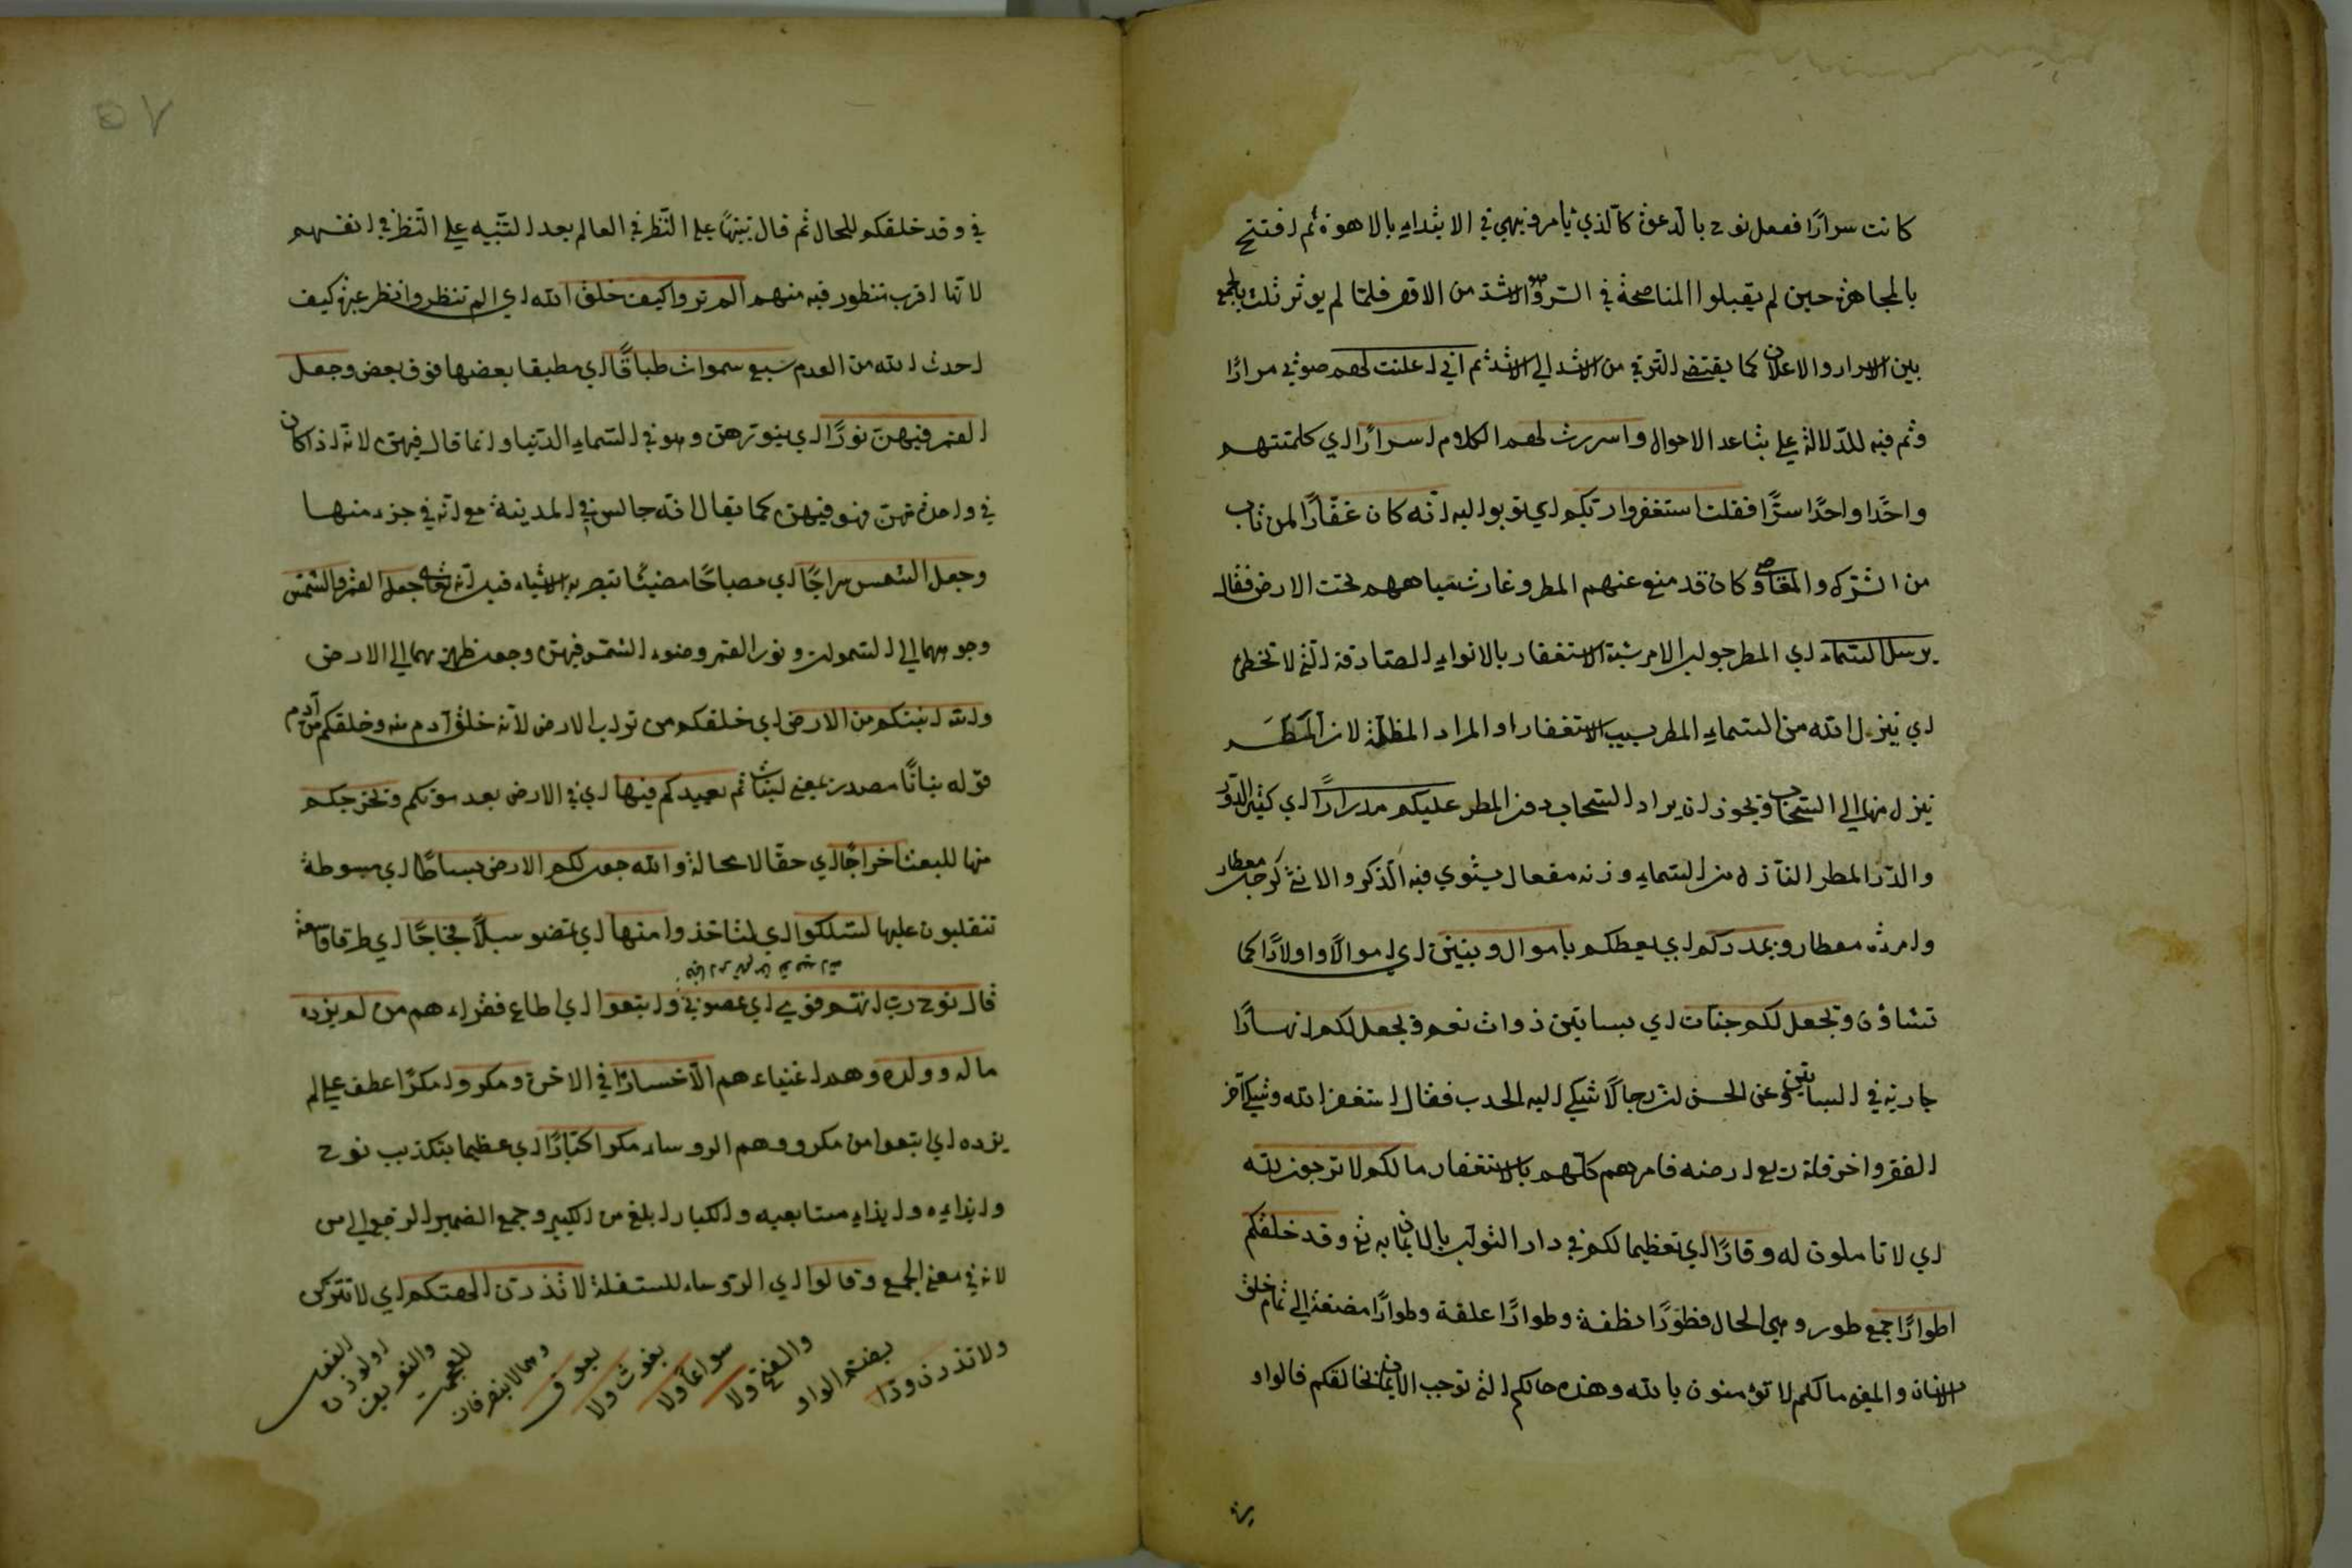 كانت سرارًا ففعل نوح بالدعوة كالذي يأمر وينهي في الابتداء بالاهون ثم افتتح
بالمجاهرة حين لم يقبلوا المناصحة في السر وهو الاشد من الاول فلما لم يوثر ثلث بالجمع
بين الاسرار والاعلان كما يقتضي الترقي من الاشد الي الاشد ثم اني اعلنت لهم صوتي مرارًا
وثم فيه للدلالة علي تباعد الاحوال واسررت لهم الكلام اسرارًا اي كلمتهم
واحدًا واحدًا سرًّا فقلت استغفروا ربكم اي توبوا اليه انه كان غفّارًا لمن تاب
من الشرك والمعاصي وكان قد منع عنهم المطر وغارت مياههم تحت الارض فقال
يرسل السماء اي المطر جواب الامر شبه الاستغفار بالانواء الصادقة التي لا تخطئ
اي ينزل الله من السماء المطر بسبب الاستغفار او المراد المظلة لان المطر
ينزل منها الي السحاب ويجوز ان يراد السحاب من المطر عليكم مدرارًا اي كثير الدرور
والدر المطر النازل من السماء وزنه مفعال يستوي فيه الذكر والانثي كرجل معطار
وامرءة معطار ويمددكم اي يعطكم باموال وبنين اي اموالًا واولادًا كما
تشاؤن ويجعل لكم جنات اي بساتين ذوات نعم ويجعل لكم انهارًا
جارية في البساتين وعن الحسن ان رجالًا شكي اليه الجدب فقال استغفر الله وشكي آخر
الفقر واخر قلة ريع ارضه فامرهم كلهم بالاستغفار ما لكم لا ترجون لله
اي لا تاملون له وقارًا اي تعظيما لكم في دار الثواب بالايمان به وقد خلقكم
اطوارًا جمع طور وهي الحال فطورًا نطفة وطورًا علقة وطورًا مضغة الي تمام خلق
الانسان والمعني ما لكم لا تؤمنون بالله وهذه حالكم التي توجب الايمان بخالقكم فالواو
في وقد خلقكم للحال ثم قال تنبيهًا علي النظر في العالم بعد التنبيه علي النظر في انفسهم
لانها اقرب منظور فيه منهم الم تروا كيف خلق الله اي الم تنظروا نظر عبرة كيف
احدث الله من العدم سبع سموات طباقًا اي مطبقا بعضها فوق بعض وجعل
القمر فيهن نورًا اي ينورهن وهو في السماء الدنيا وانما قال فيهن لانه اذا كان
في واحدة منهن فهو فيهن كما يقال انه جالس في المدينة مع انه في جزء منها
وجعل الشمس سراجًا اي مصباحًا مضيئًا تبصر به الاشياء قيل انه تعالي جعل القمر والشمس
وجوههما الي السموات ونور القمر وضوء الشمس فيهن وجعل ظهورهما الي الارض
والله انبتكم من الارض اي خلقكم من تراب الارض لانه خلق آدم منه وخلقكم من آدم
قوله نباتًا مصدر بمعني انباتا ثم يعيدكم فيها اي في الارض بعد موتكم ويخرجكم
منها للبعث اخراجًا اي حقا لا محالة والله جعل لكم الارض بساطًا اي مبسوطة
تتقلبون عليها لتسلكوا اي لتاخذوا منها اي تمضو سبلًا فجاجًا اي طرقا واسعة
قال نوح رب انهم قومي اي عصوني واتبعوا اي اطاع فقراءهم من لم يزده
ماله وولده وهم اغنياءهم الا خسارًا في الاخرة ومكروا مكرًا عطف علي لم
يزده اي اتبعوا من مكروا وهم الروساء مكرا كبّارًا اي عظيما بتكذيب نوح
وايذايه وايذاء متابعيه والكبار ابلغ من الكبير وجمع الضمير الراجع الي من
لانه في معني الجمع وقالوا اي الروساء للسفلة لا تذرن الهتكم اي لا تتركن
ولا تذرن ودًا بضم الواو والفتح ولا سواعًا ولا يغوث ولا يعوق وهما لا ينصرفان للعجمة والتعريف او لوزن الفعل